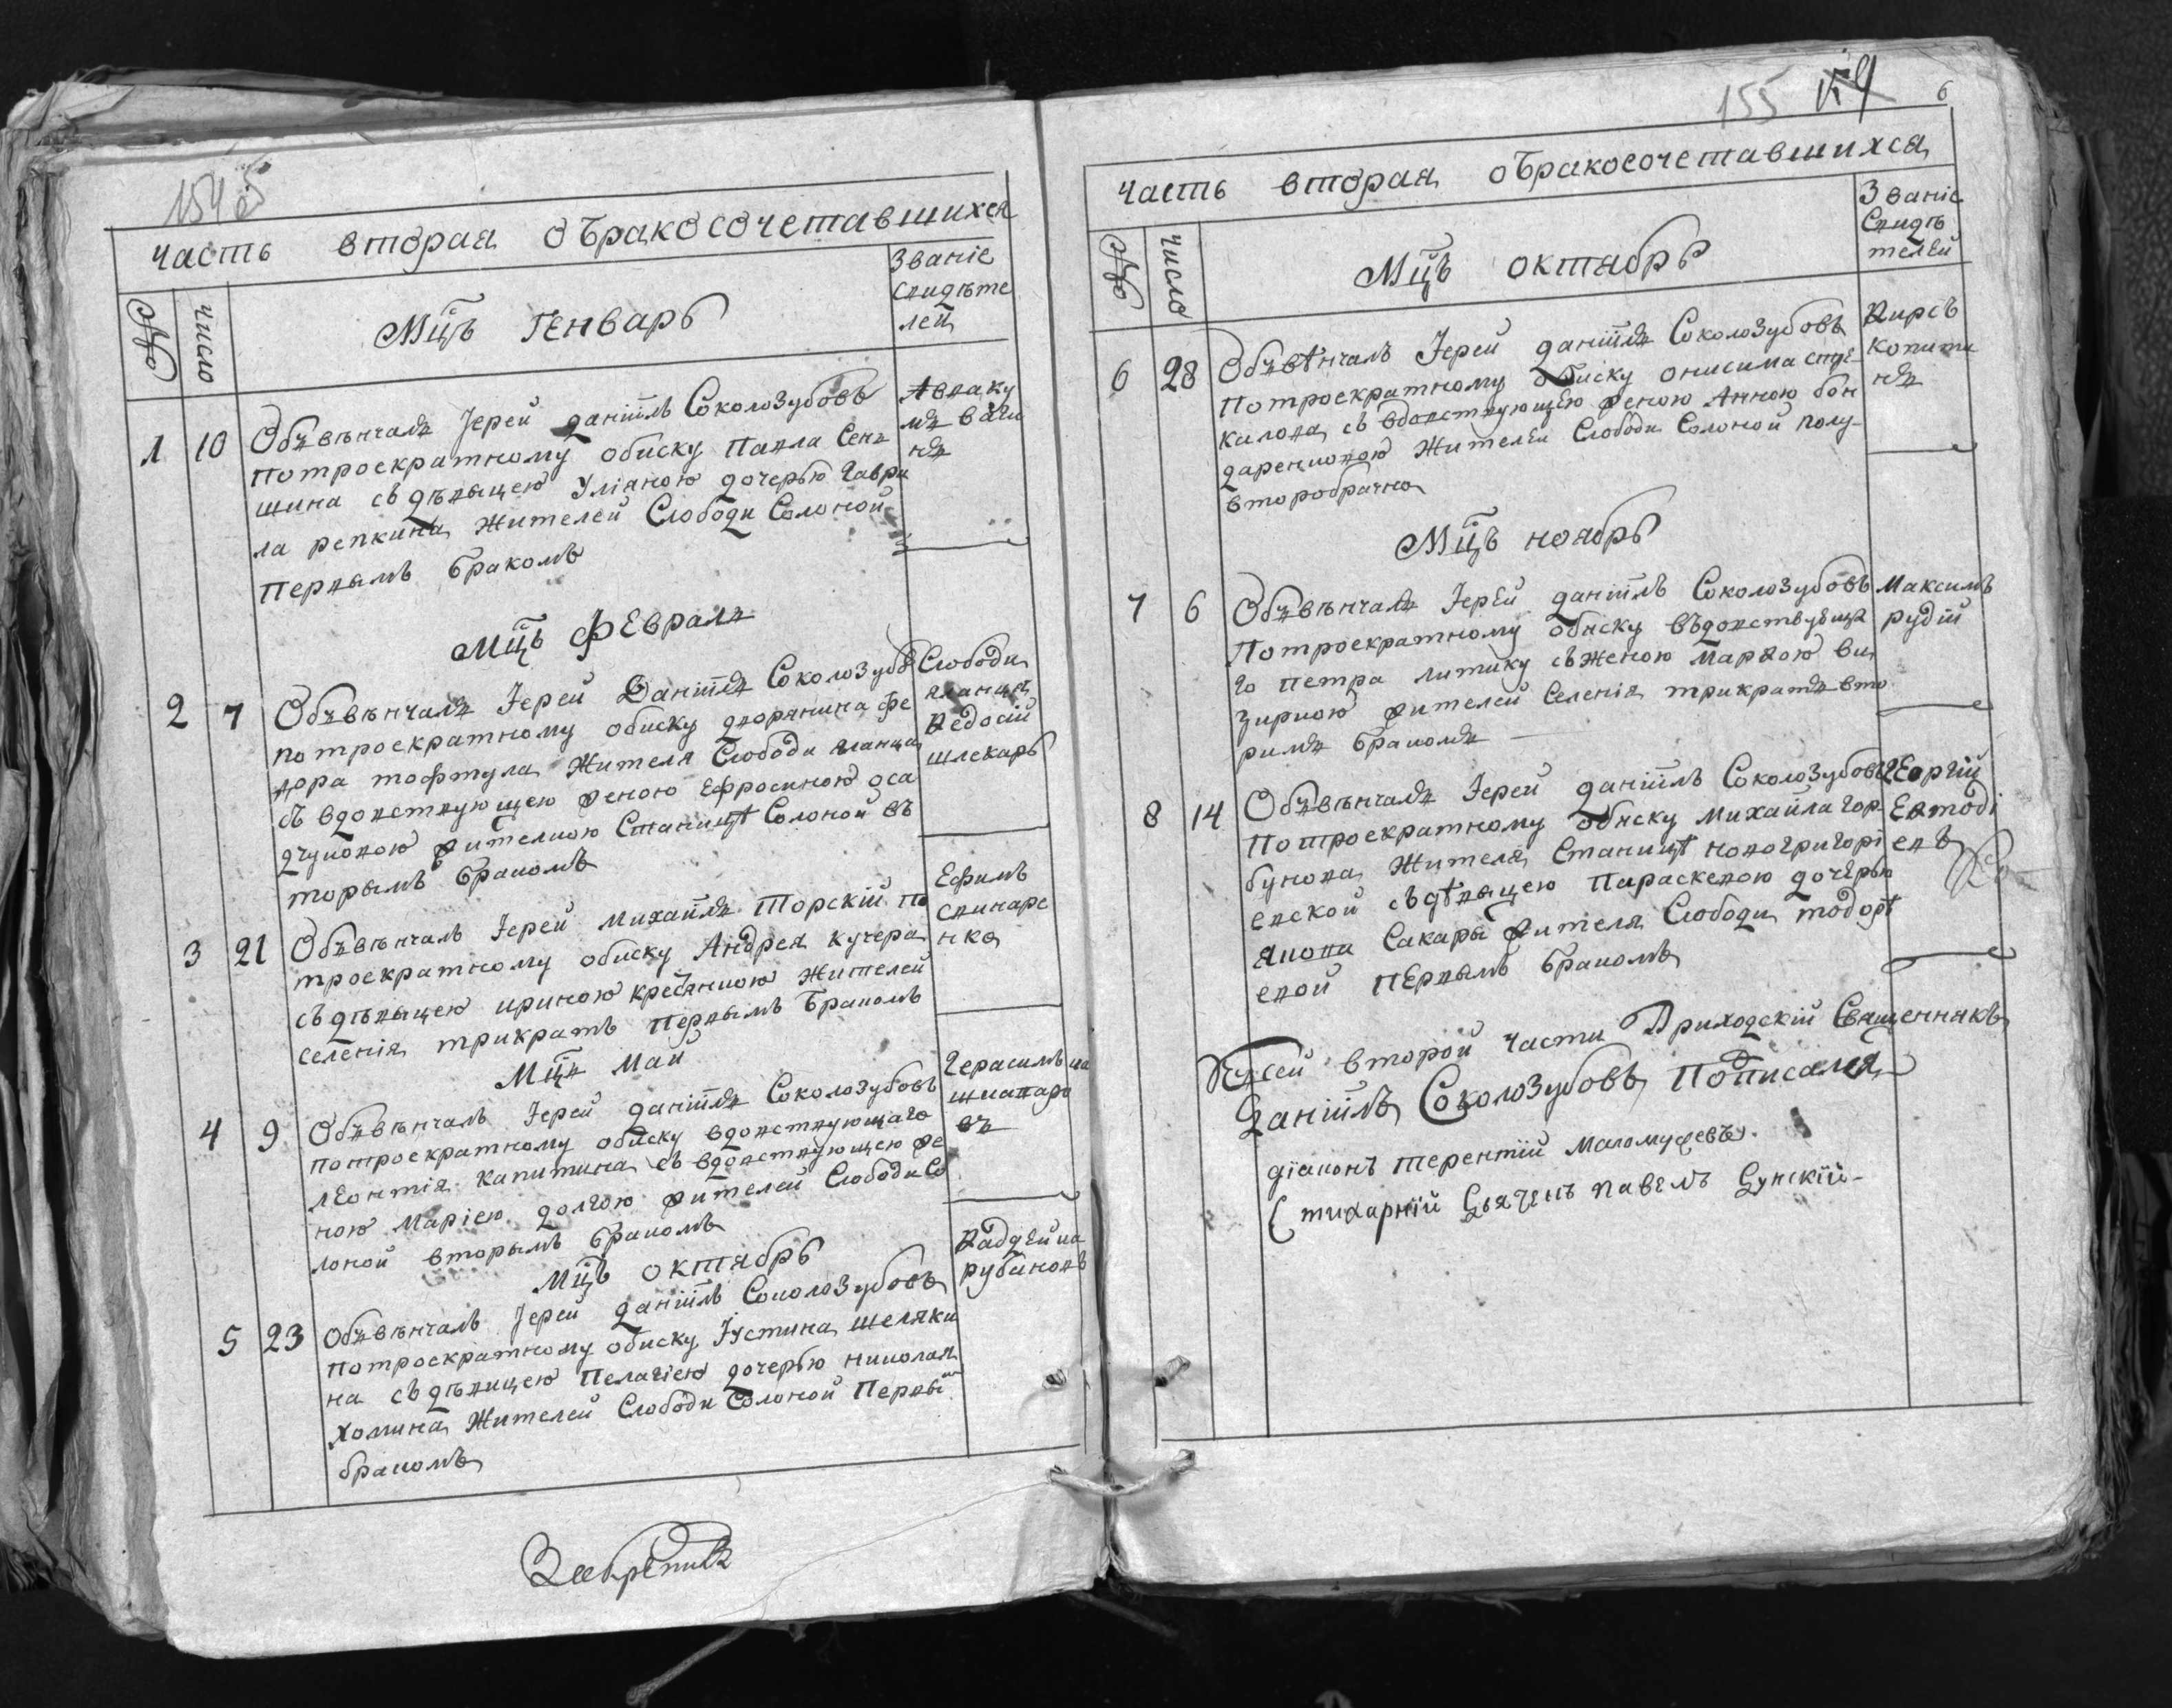 154
часть вторая обракосочетавшихся
№
число
Мцъ Генварь
Званіе
свидѣте
лей
1 10
Обвѣнчалъ Іерей даніилъ Соколозубовъ
потроекратному обиску Павла Сенъ
шина съ дѣвицею Уліяною дочерью Гаври
ла репкина жителей Слободи Солоной
первымъ бракомъ
Авваку
мъ ваги
нъ
Мцъ Февраль
2 7
Обвѣнчалъ Іерей Даніилъ Соколозубо
по троекратному обиску дворянина фе
дора тофтула жителя Слободи яланца
съ вдовствующею женою Ефросиною оса
дчуковою жителкою Станицѣ Солоной въ
торымъ бракомъ
Слободи
яланца
Федосій
шлекарь
3 21
Обвѣнчалъ Іерей Михаилъ Торскій по
троекратному обиску Андрея кучера
съ дѣвицею ириною жителей
селенія трикратъ первымъ бракомъ
Ефимъ
спинаре
нко
Мцъ Май
4 9
Обвѣнчалъ Іерей даніилъ Соколозубовъ
потроекратному обиску вдовствующаго
леонтія капитина съ вдовствующею же
ною Маріею долгою жителей Слободи Со
лоной вторымъ бракомъ
Герасимъ ка
шкапаро
въ
Мцъ октябрь
5 23
Обвѣнчалъ Іерей даніилъ Соколозубовъ
потроекратному обиску Іустина шеляки
на съ дѣвицею Пелагіею дочерью николая
хомина жителей Слободи Солоной Первы
бракомъ
Фаддей ка
рубановъ
155
6
часть вторая обракосочетавшихся
№
число
Мцъ октябрь
Званіе
Свидѣ
телей
6 28
Обвѣнчалъ Іерей даніилъ Соколозубовъ
потроекратному обиску онисима спде
калова съ вдовствующею женою Анною бон
даренковою жителей Слободи Солоной полу-
второбрачно
Фирсъ
копити
нъ
Мцъ ноябрь
7 6
Обвѣнчалъ Іерей даніилъ Соколозубовъ
потроекратному обиску въдовствующа
го петра литику съ женою Марфою ви
зиркою жителей селенія трикратъ вто
римъ бракомъ
Максимъ
рудій
8 14
Обвѣнчалъ Іерей даніилъ Соколозубовъ
потроекратному обиску михайла гор
бунова жителя Станицѣ новогригорі
евской съ дѣвицею Параскевою дочерью
якова Сакары жителя Слободи тодорѣ
евой первымъ бракомъ
Георгій
Евтоді
евъ
Ксей второй части Приходскій Священникъ
Даніилъ Соколозубовъ Подписалъ
діаконъ терентій маломужевъ
Стихарній Дьячекъ павелъ Дунскій